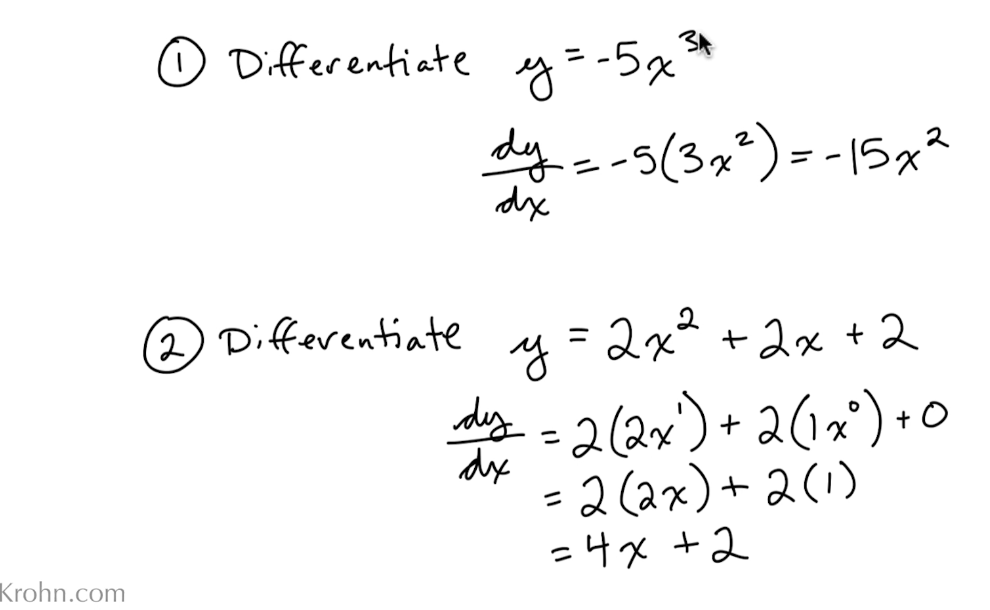 ① Differentiate y = -5x³
dy/dx = -5(3x²) = -15x²
② Differentiate y = 2x² + 2x + 2
dy/dx = 2(2x¹) + 2(1x⁰) + 0
= 2(2x) + 2(1)
= 4x + 2
Krohn.com